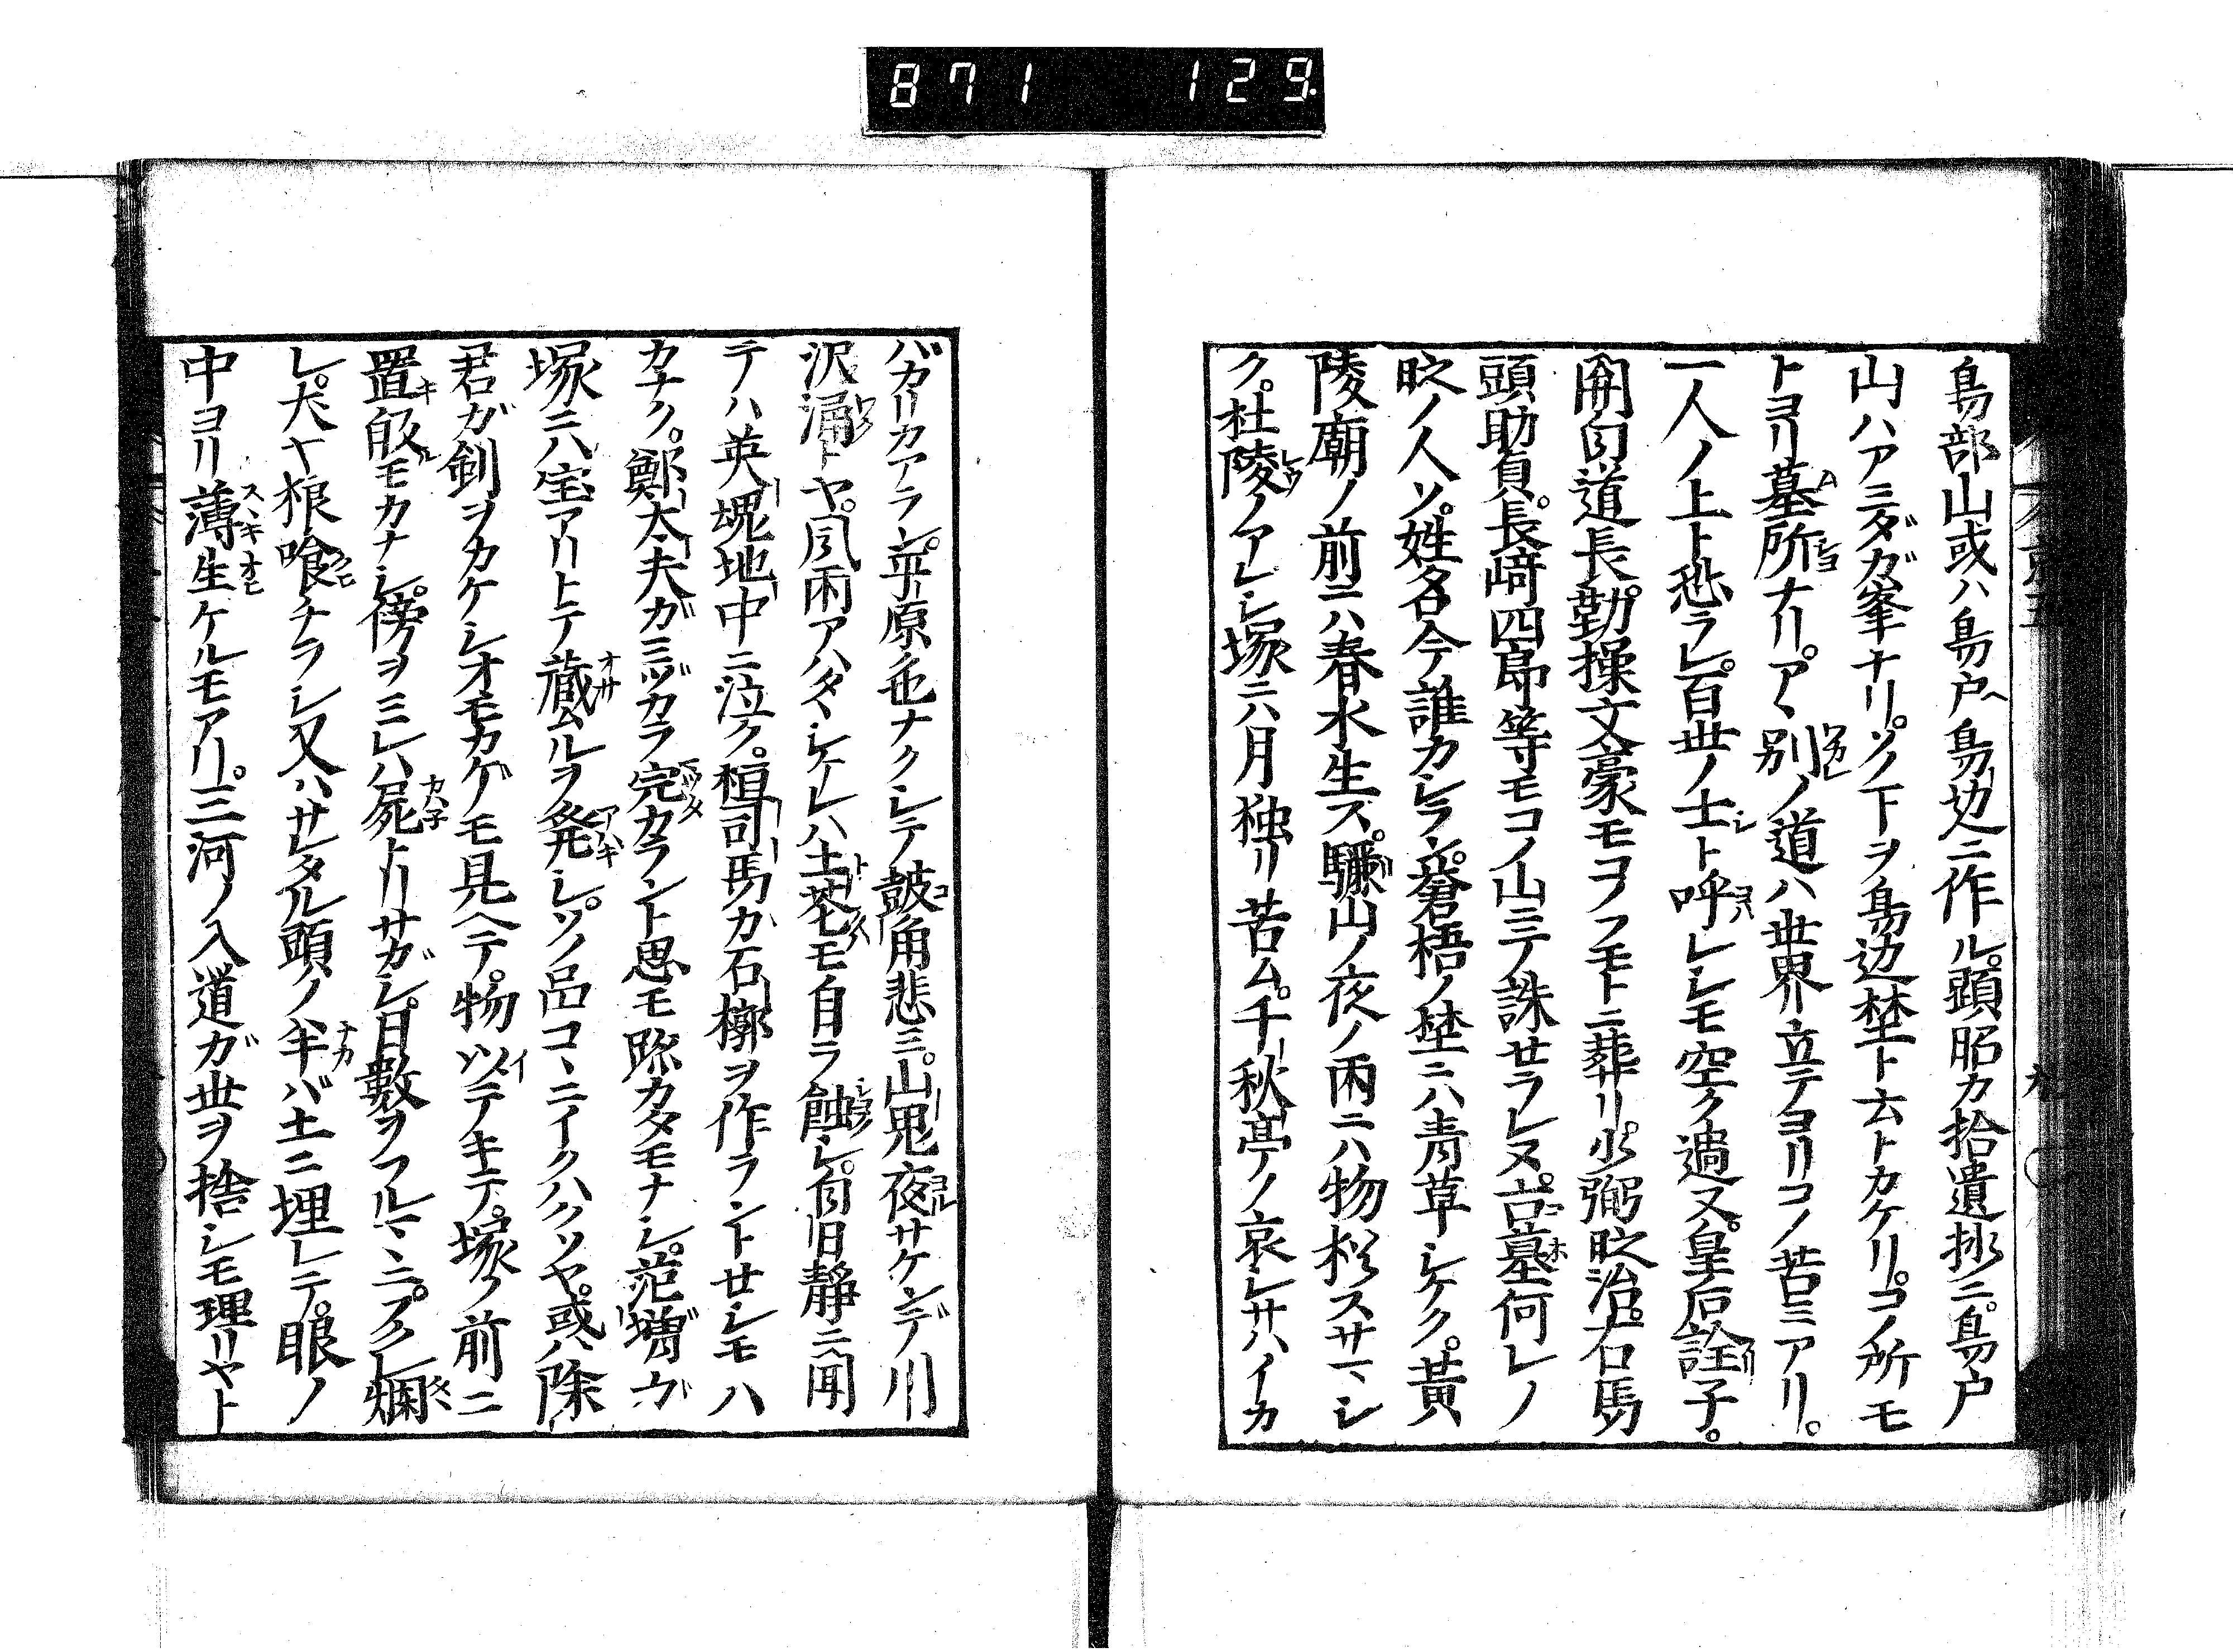 871 129
鳥部山或ハ鳥戸鳥边ニ作ル。顕昭カ拾遺抄ニ。鳥戸
山ハアミダガ峯ナリ。ソノ下ヲ鳥辺埜ト云トカケリ。コノ所モ
トヨリ墓所ナリ。アヽ別ノ道ハ世界立テヨリコノ苦ミアリ。
一人ノ上ト愁ラレ。百世ノ士ト呼レシモ空ク過ヌ。皇后詮子。
関白道長。勤操文豪モヨヲフモトニ葬リ。少弼眤治。右馬
頭助貞。長﨑四郎等モコノ山ニテ誅セラレヌ。古墓何レノ
眤ノ人ソ。姓名今誰カシラン。蒼梧ノ埜ニハ青草シケク。黄
陵廟ノ前ニハ春水生ス。驪山ノ夜ノ雨ニハ物松スサマシ
ク。杜陵ノアレシ塚ニ六月独リ苦ム。千秋亭ノ哀レサハイカ
バカリカアラン。平原色ナクシテ皷角悲ミ。山鬼夜サケンデ川
沢涌トヤ。風雨アハタヽシケレハ土茎モ自ラ蝕シ。白日静ニ閑
テハ英塊地中ニ泣ク。桓司馬カ石槨ヲ作ラントセシモハ
カナク。鄭大夫ガミヅカラ完カラント思モ跡カタモナシ。范増ガ
塚ニハ宝アリトテ蔵ムルヲ発シ。ソノ邑コヽニイクハクソヤ。或ハ除
君ガ剣ヲカケシオモカゲモ見ヘテ。物ツイテキエテ。塚ノ前ニ
置般モカナシ。傍ヲミレハ屍トリサガシ。日数ヲフルマヽニ。フクレ爛
レ。犬ヤ狼喰チラシ又ハサレタル頭ノ半バ土ニ埋レテ。眼ノ
中ヨリ薄生ケルモアリ。三河ノ入道ガ世ヲ捨シモ理リヤト